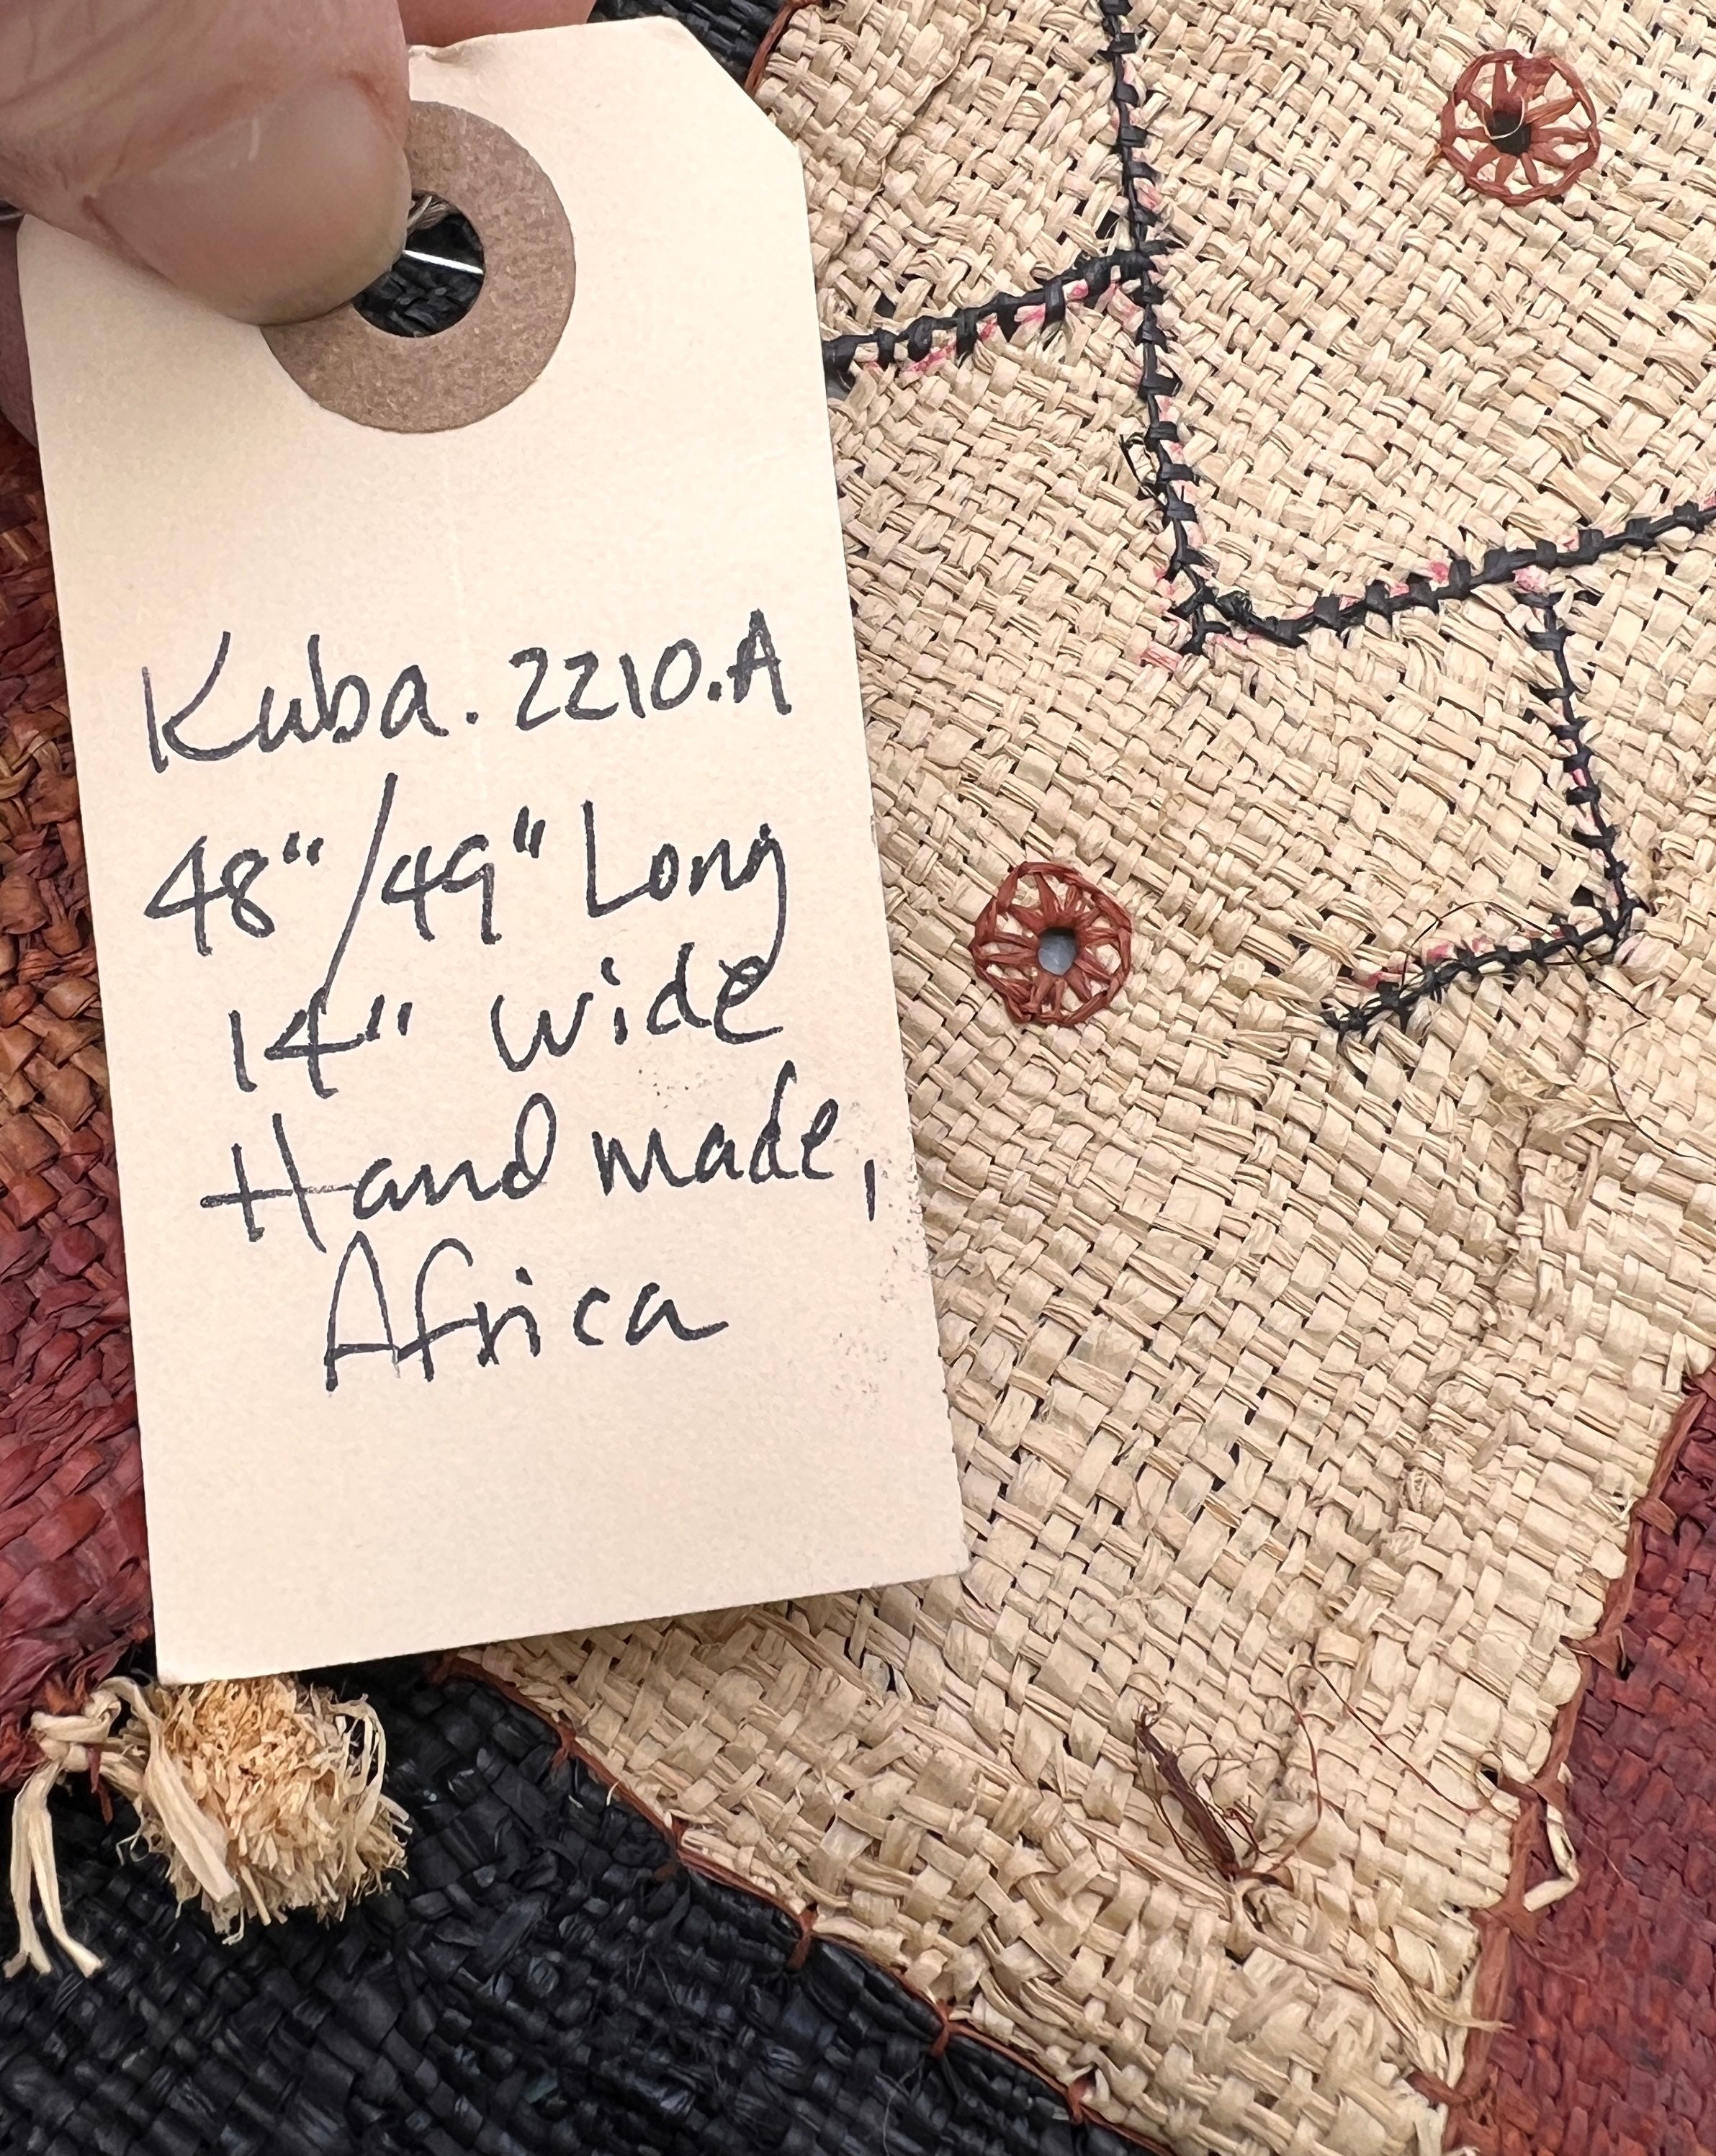 Kuba.2210.A
48"/49" Long
14" wide
Handmade,
Africa